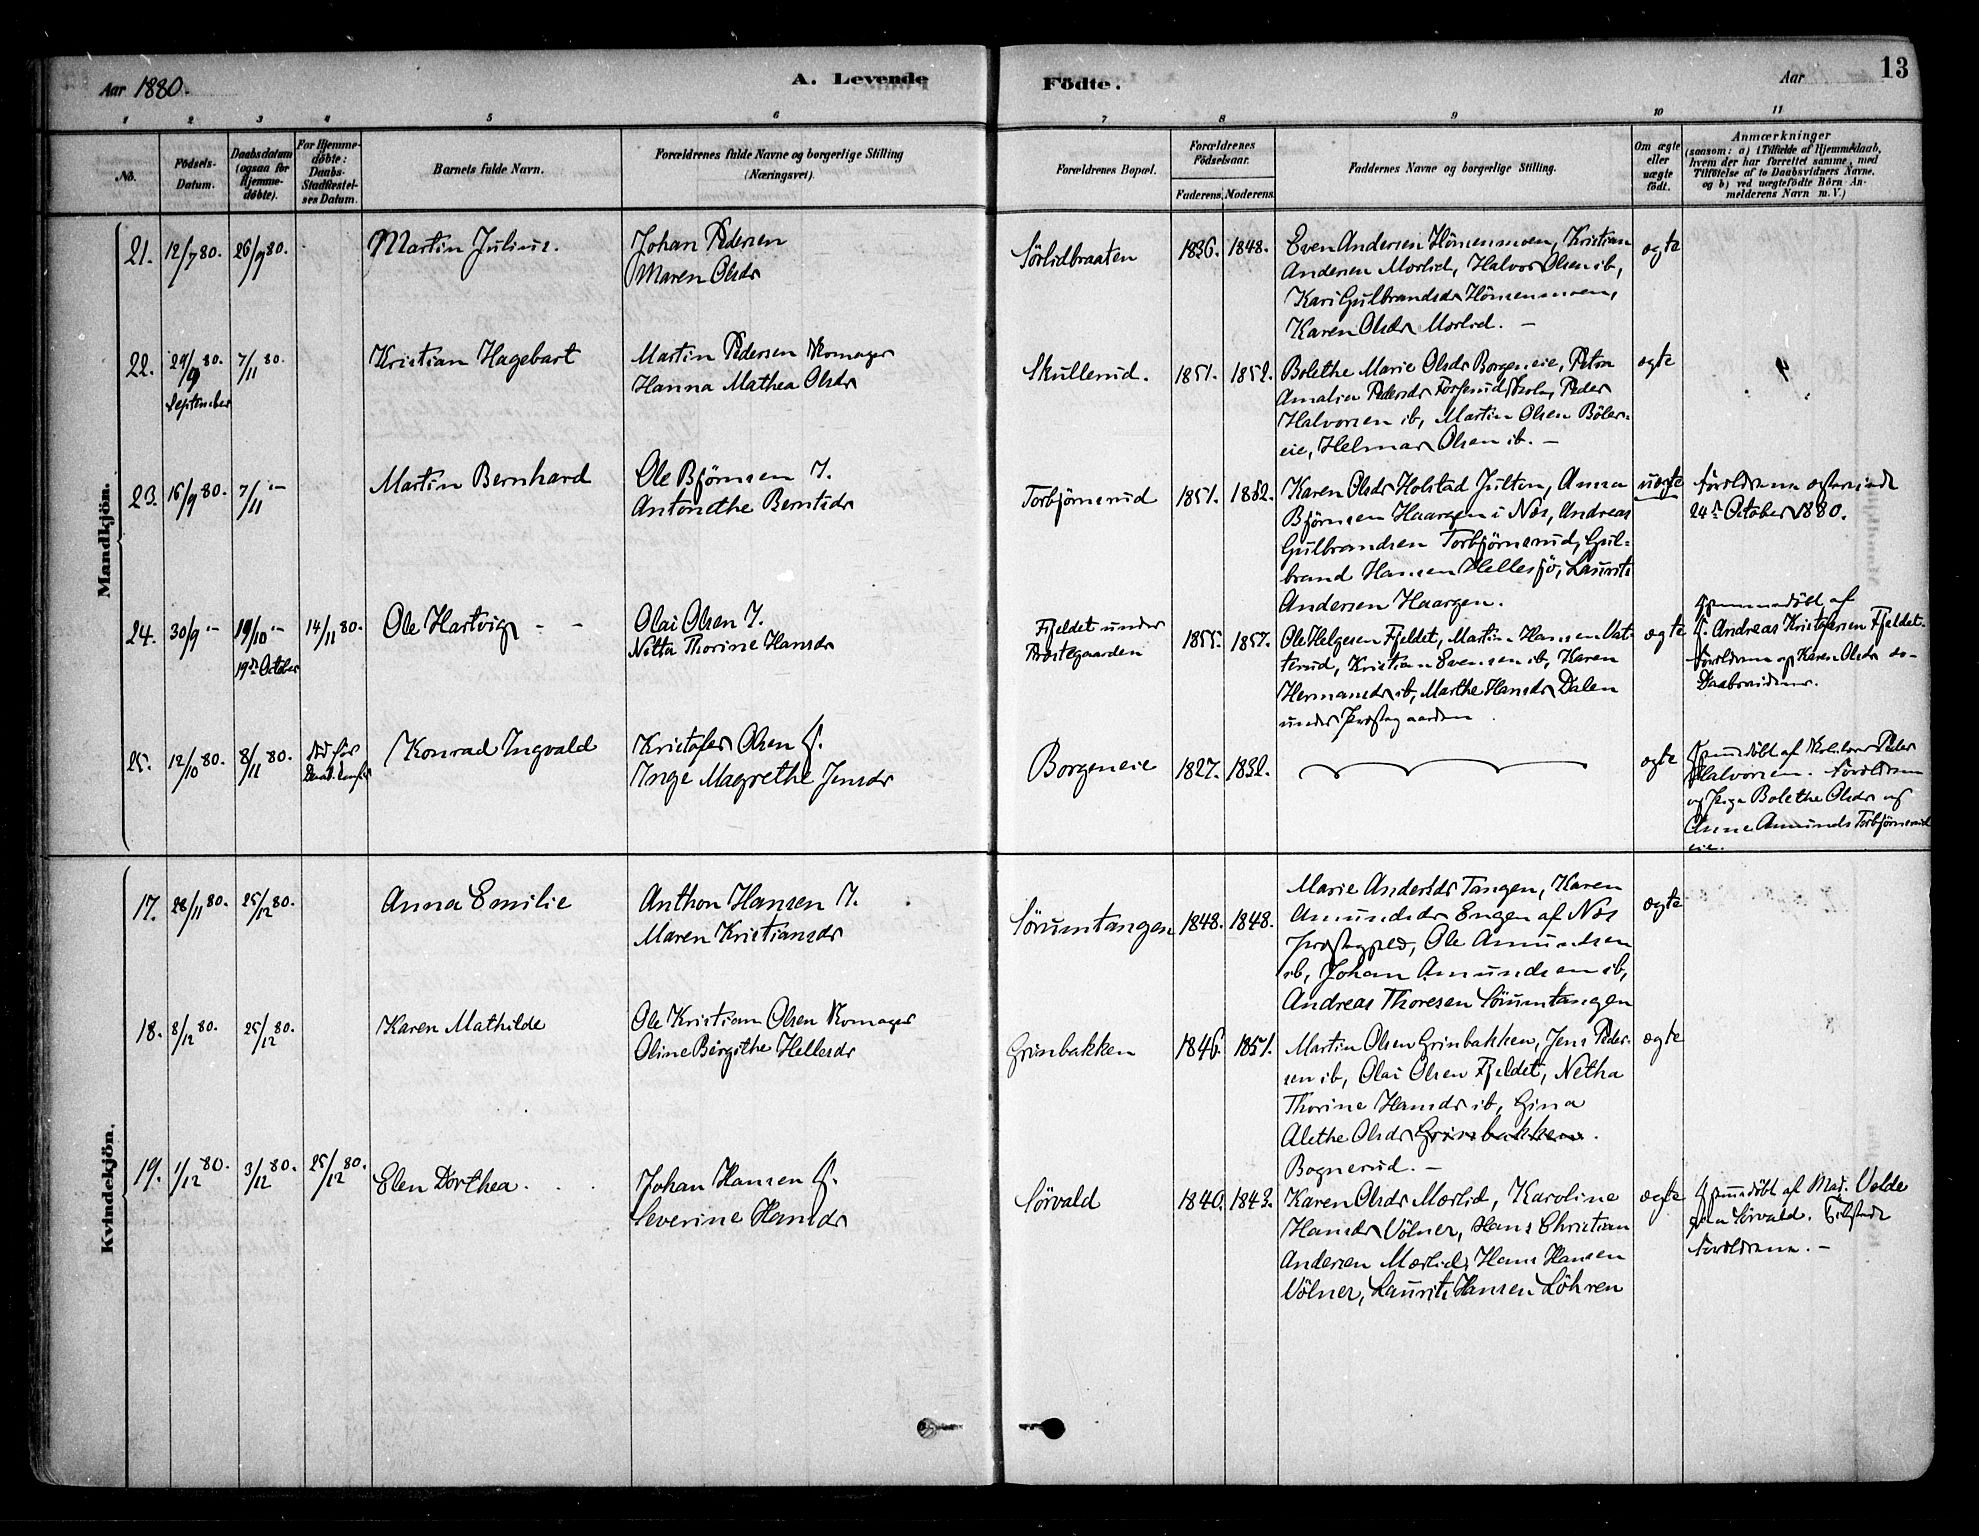 Aar 1880.
A. Levende
Födte.
Aar
13
1 2 3 4 5 6 7 8 9 10 11
No.
Födsels-
Datum.
Daabsdatum
(ogsaa for
Hjemme-
döbte).
For Hjemme-
döbte:
Daabs-
Stadfæstel-
ses Datum.
Barnets fulde Navn.
Forældrenes fulde Navne og borgerlige Stilling
(Næringsvei).
Forældrenes Bopæl.
Forældrenes
Födselsaar.
Faderens. Moderens.
Faddernes Navne og borgerlige Stilling.
Om ægte
eller
uægte
födt.
Anmærkninger
(saasom: a) i Tilfælde af Hjemmedaab,
hvem der har forrettet samme, med
Tilföielse af to Daabsvidners Navne,
og b) ved uægtefödte Börn An-
melderens Navn m. V.)
Mandkjön.
21. 12/7 80. 26/9 80. Martin Julius.
Johan Pedersen
Maren Olsdr
Sörlidbraaten 1836. 1848.
Even Andersen Hönsenmoen, Kristian
Andersen Mærlid, Halvor Olsen ib,
Kari Gulbrandsdr Hönsenmoen,
Karen Olsdr Mærlid. —
ægte
22. 29/9 80. 7/11 80. Kristian Hagebart
September
Martin Pedersen
Hanna Mathea Olsdr
Skullerud. 1851. 1852.
Bolethe Marie Olsdr Borgeneie, Petra
Amalia Pedersdr Peder
Halvorsen ib, Martin Olsen Böler-
eie, Helmar Olsen ib. —
ægte
23. 16/9 80. 7/11 — Martin Bernhard
Ole Björnsen I.
Antonethe Berntsdr
Torbjörnsrud 1851. 1852.
Karen Olsdr Holstad Julton, Anna
Björnsen Haargen i Næs, Andreas
Gulbrandsen Torbjörnsrud, Gul-
brand Hansen Hellesjö, Laurits
Andersen Haargen.
uægte
Forældrene
24de October 1880.
24. 30/9 — 19/10 — 14/11 80. Ole Hartvig - -
19de October
Olai Olsen I.
Netta Thorine Hansdr
Fjeldet under
Præstegaarden 1855. 1857.
Ole Helgesen Fjeldet, Martin Hansen Vat-
terud, Kristian Evensen ib, Karen
Hermansdr ib, Marthe Hansdr Dalen
under Præstegaarden
ægte
Hjemmedöbt af
G. Andreas Kristofersen Fjeldet.
Forældrene og Karen Olsdr do-
Daabsvidner.
25. 12/10 80. 8/11 80. Död för Konrad Ingvald
Kristofer Olsen G.
Inge Magrethe Jensdr
Borgeneie 1827. 1832.
ægte
Hjemmedöbt af Peder
Halvorsen. Forældrene
og Pige Bolethe Olsdr og
Anne Amunds Torbjörnsrud
eie.
Kvindekjön.
17. 28/11 80. 25/12 80. Anna Emilie
Anthon Hansen I.
Maren Kristiansdr
Sörumtangen 1848. 1848.
Marie Andersdr Tangen, Karen
Amundsdr Engen af Næs
Præstegjeld, Ole Amundsen
ib, Johan Amundsen ib,
Andreas Thoresen Sörumtangen
ægte
18. 8/12 80. 25/12 80. Karen Mathilde
Ole Kristian Olsen
Oline Birgithe Hellesdr
Grinbakken 1846. 1851.
Martin Olsen Grinbakken, Jens Peder-
sen ib, Olai Olsen Fjeldet, Netha
Thorine Hansdr ib, Gina
Alethe Olsdr Grinbakken.
Bognerud. —
ægte
19. 1/12 80. 3/12 80. 25/12 80. Elen Dorthea.
Johan Hansen G.
Severine Hansdr
Sörvald 1840. 1843.
Karen Olsdr Mærlid, Karoline
Hansdr Völner, Hans Christian
Andersen Mærlid, Hans Hansen
Völner, Laurits Hansen Löhren
ægte
Hjemmedöbt af Mad. Velde
Sörvald. Tilstede
Forældrene. —